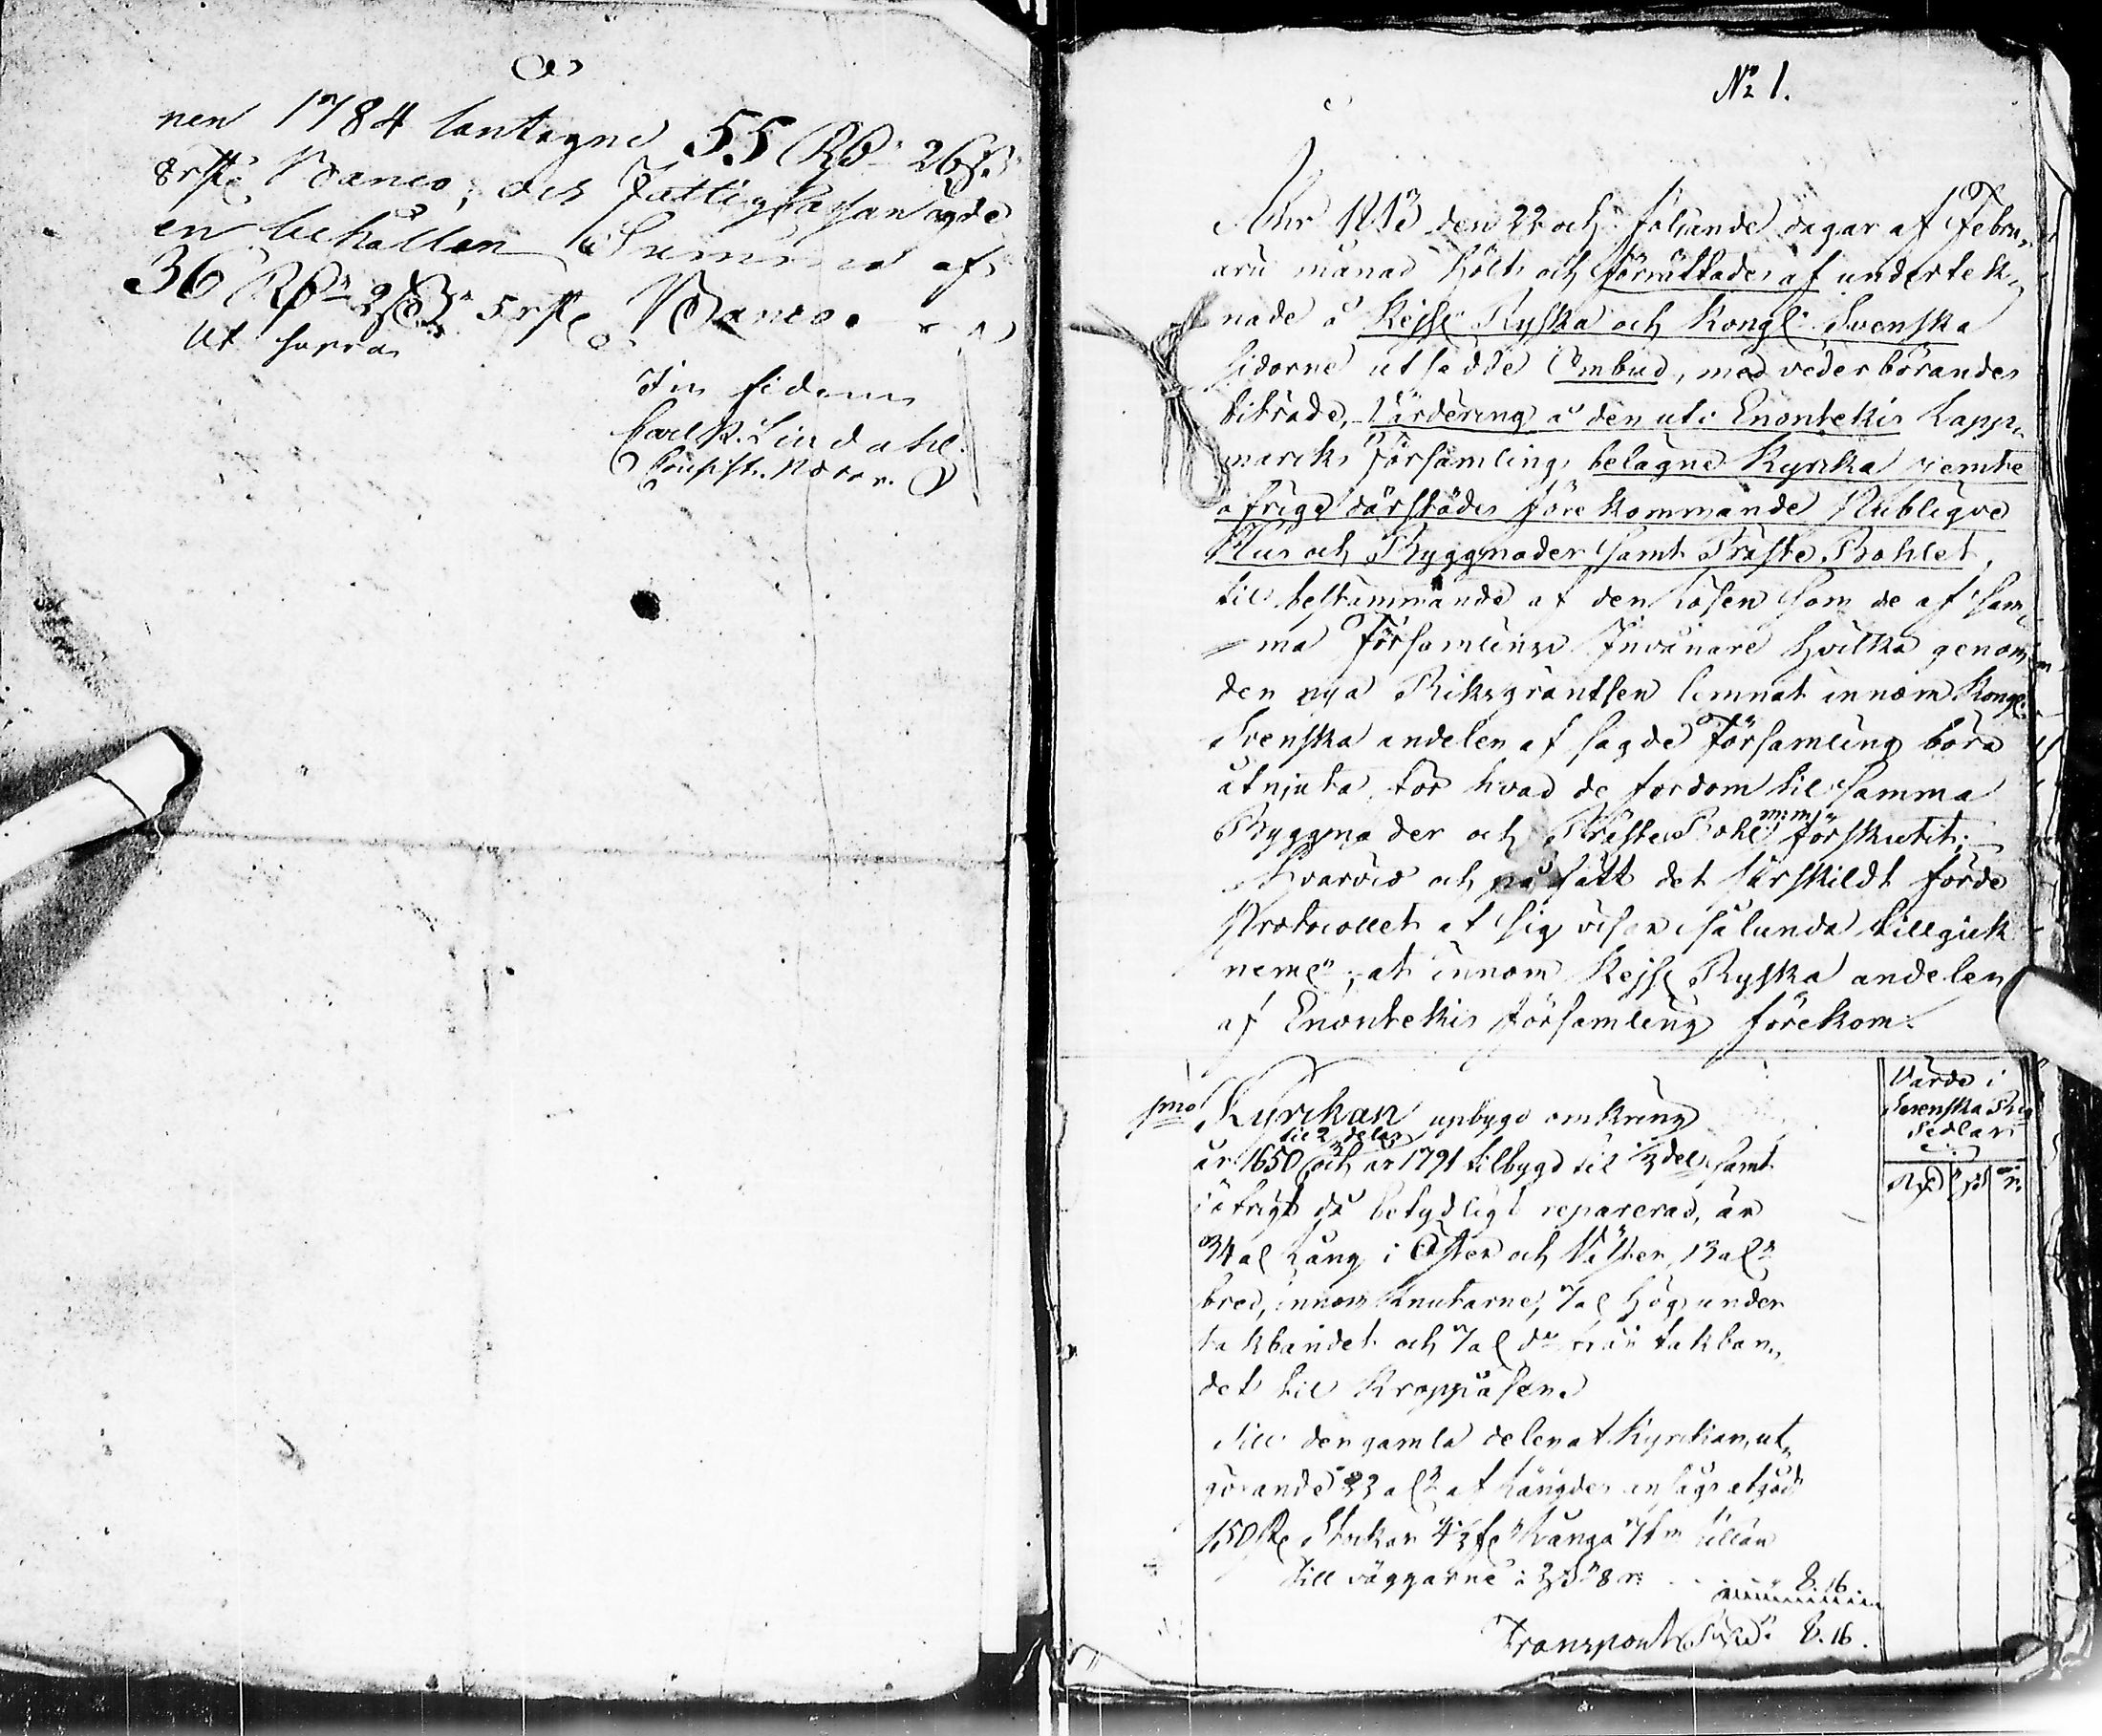 nen 1784 antagne 55 Rd 26 s.
8 rst. Banco; och Fattigkassan ägde
en behållen Summa af
36 Rdr 28 s. 5 rst. Banco.
Ut supra
In fidem
Carl P. Lindahl.
Consist. Notar.
No 1.
Åhr 1813 den 22 och följande dagar af Febru„
arii månad hölts och förrättades af underteck„
nade å Kejsl Ryska och Kongl Svenska
sidorne utsedde Ombud, med vederbörandes
biträde, Värdering å den uti Enontekis Lapp„
marcks Församling belägne Kyrcka jemte
öfrige därstädes förekommande Publiqve
Hus och Byggnader samt Präste Bohlet,
till bestämmande af den lösen som de af sam„
ma Församlings Invånare hvilka genom
den nya Riksgräntsen lemnat innom Kongl
Svenska andelen af sagde Församling böra
åtnjuta för hvad de fordom til samma
Byggnader och Präste Bohl m: m: förskutit;
Hvarvid och på sätt det särskildt förde
Protocollet at sig visar sålunda tillgick
neml; at innom Kejsl Ryska andelen
af Enontekis Församling förekom.
1mo Kyrckan upbygd omkring
til 2/3 delar
år 1650 och år 1791 tilbygd til 1/3 del samt
i öfrigt då betydligt reparerad, är
34 al lång i Öster och Väster, 13 alr
bred, innom Knutarne, 7 al hög under
takbandet och 7 al do från takban„
det til Kroppåsen.
Till den gamla delen af Kyrckan, ut„
görande 22 alr af längden ansågs åtgådt
150 st Stockar 4½ f Långa 7 tm
till väggarne à 2 s 8 r 8.16
Transport 8.16.
Värde i
Svenska Rg
Sedlar
Rd s r